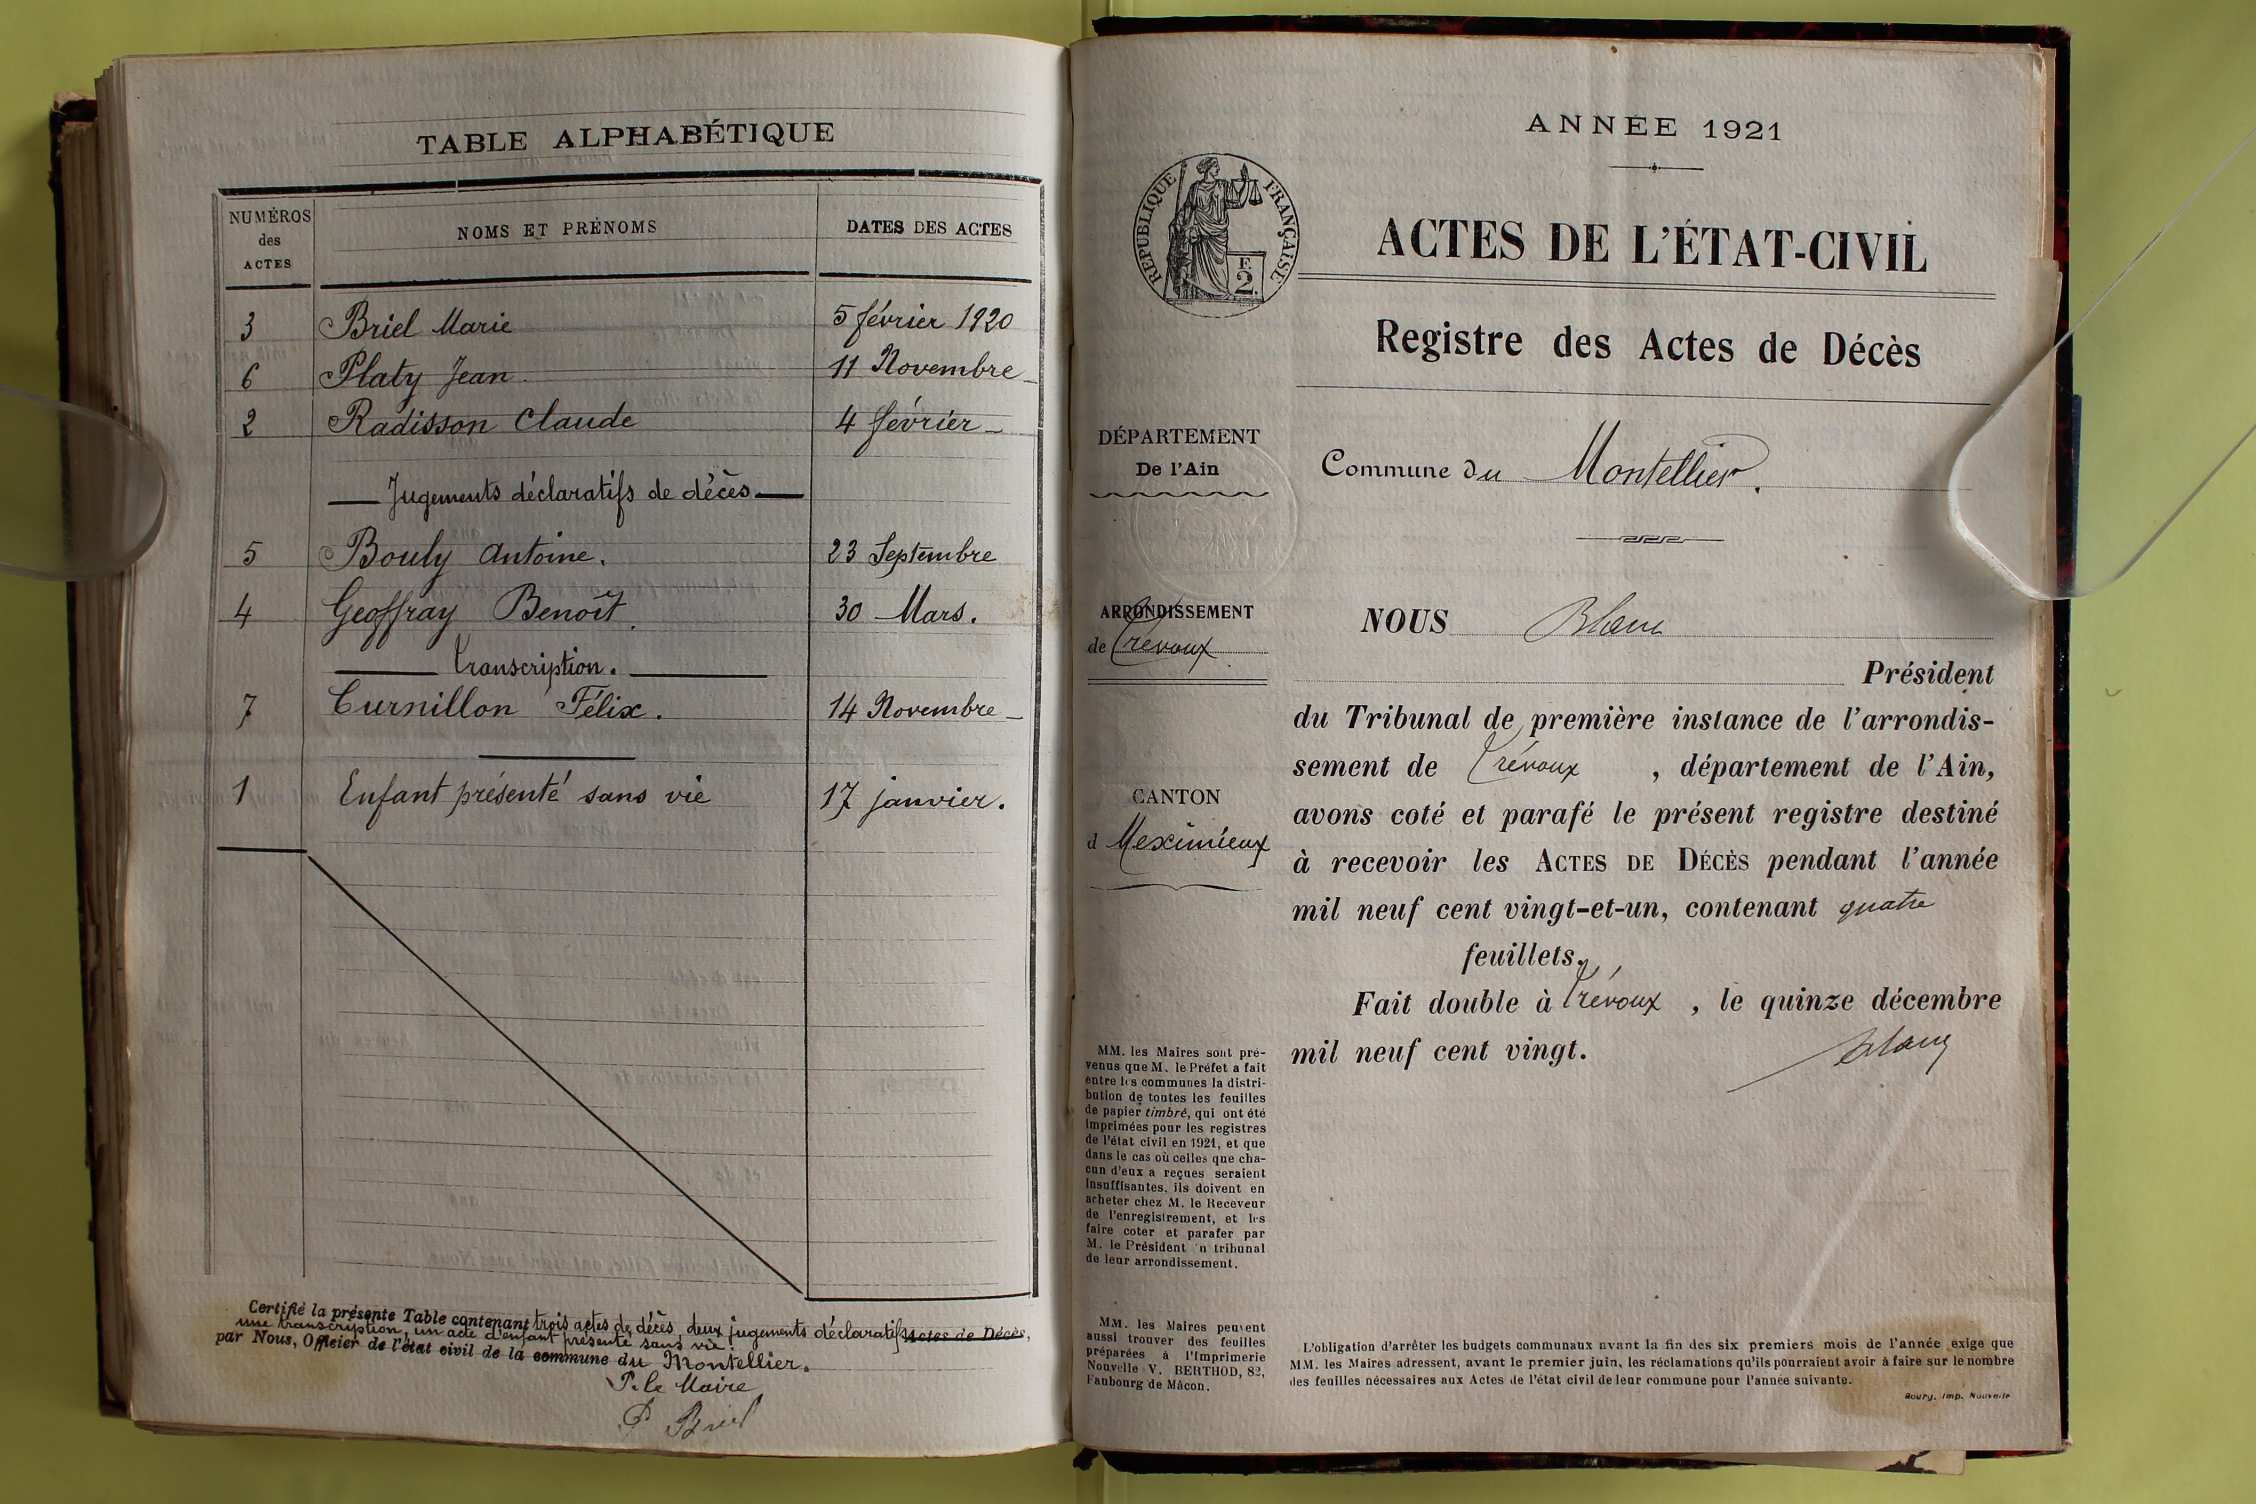 TABLE ALPHABÉTIQUE
NUMÉROS des ACTES NOMS ET PRÉNOMS DATES DES ACTES
3 Briel Marie 5 février 1920
6 Platy Jean 11 Novembre
2 Radisson Claude 4 février
Jugements déclaratifs de décès
5 Bouly Antoine. 23 Septembre
4 Geoffray Benoît. 30 Mars.
Transcription.
7 Curnillon Félix. 14 Novembre
1 Enfant présenté sans vie 17 janvier.
Certifié la présente Table contenant trois actes de décès, deux jugements déclaratifs Actes de Décès,
une transcription, un acte d'enfant présenté sans vie.
par Nous, Officier de l'état civil de la commune du Montellier.
P. le Maire
P Briel
ANNÉE 1921
RÉPUBLIQUE FRANÇAISE
F.
2.
ACTES DE L'ÉTAT-CIVIL
Registre des Actes de Décès
DÉPARTEMENT
De l'Ain
Commune du Montellier.
ARRONDISSEMENT
de Trévoux
CANTON
d Meximieux
NOUS Blanc
Président
du Tribunal de première instance de l'arrondis-
sement de Trévoux, département de l'Ain,
avons coté et parafé le présent registre destiné
à recevoir les ACTES DE DÉCÈS pendant l'année
mil neuf cent vingt-et-un, contenant quatre
feuillets.
Fait double à Trévoux, le quinze décembre
mil neuf cent vingt.
Blanc
MM. les Maires sont pré-
venus que M. le Préfet a fait
entre les communes la distri-
bution de toutes les feuilles
de papier timbré, qui ont été
imprimées pour les registres
de l'état civil en 1921, et que
dans le cas où celles que cha-
cun d'eux a reçues seraient
insuffisantes, ils doivent en
acheter chez M. le Receveur
de l'enregistrement, et les
faire coter et parafer par
M. le Président n tribunal
de leur arrondissement.
MM. les Maires peuvent
aussi trouver des feuilles
préparées à l'Imprimerie
Nouvelle V. BERTHOD, 82,
Faubourg de Mâcon.
L'obligation d'arrêter les budgets communaux avant la fin des six premiers mois de l'année exige que
MM. les Maires adressent, avant le premier juin, les réclamations qu'ils pourraient avoir à faire sur le nombre
des feuilles nécessaires aux Actes de l'état civil de leur commune pour l'année suivante.
Bourg, Imp. Nouvelle